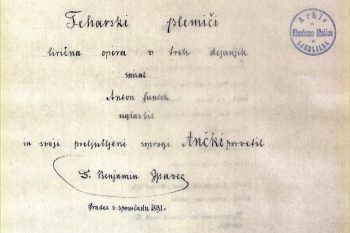 Teharski plemiči
lirična opera v treh dejanjih
spisal
Anton Funtek
uglasbil
in svoji preljubljeni soprogi Ančki posvetil
Dr. Benjamin Ipavec
Gradec v spomladi 1891.
Arhiv